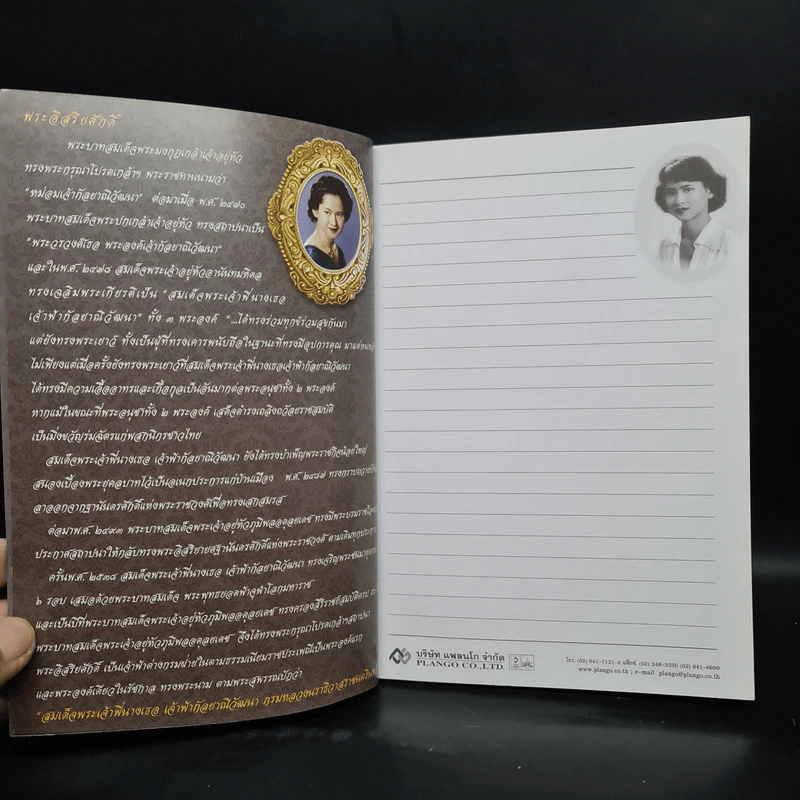 พระอิสริยศักดิ์
พระบาทสมเด็จพระมงกุฎเกล้าเจ้าอยู่หัว
ทรงพระกรุณาโปรดเกล้าฯ พระราชทานนามว่า
"หม่อมเจ้ากัลยาณิวัฒนา" ต่อมาเมื่อ พ.ศ. ๒๔๗๐
พระบาทสมเด็จพระปกเกล้าเจ้าอยู่หัว ทรงสถาปนาเป็น
"พระวรวงศ์เธอ พระองค์เจ้ากัลยาณิวัฒนา"
และในพ.ศ. ๒๔๗๘ สมเด็จพระเจ้าอยู่หัวอานันทมหิดล
ทรงเฉลิมพระเกียรติเป็น "สมเด็จพระเจ้าพี่นางเธอ
เจ้าฟ้ากัลยาณิวัฒนา" ทั้ง ๓ พระองค์ "...ได้ทรงร่วมทุกข์ร่วมสุขกันมา
แต่ยังทรงพระเยาว์ ทั้งเป็นผู้ที่ทรงเคารพนับถือในฐานะที่ทรงมีอุปการคุณ มาแต่หนหลัง
ไม่เพียงแต่เมื่อครั้งยังทรงพระเยว์ที่สมเด็จพระเจ้าพี่นางเธอเจ้าฟ้ากัลยาณิวัฒนา
ได้ทรงมีความเอื้ออาทรและเกื้อกูลเป็นอันมากต่อพระอนุชาทั้ง ๒ พระองค์
หากแม้ในขณะที่พระอนุชาทั้ง ๒ พระองค์ เสด็จดำรงเถลิงถวัลยราชสมบัติ
เป็นมิ่งขวัญร่มฉัตรแก่พสกนิกรชาวไทย
สมเด็จพระเจ้าพี่นางเธอ เจ้าฟ้ากัลยาณิวัฒนา ยังได้ทรงบำเพ็ญพระราชกิจน้อยใหญ่
สนองเบื้องพระยุคลบาทไว้เป็นอเนกประการแก่บ้านเมือง พ.ศ. ๒๔๘๗ ทรงกราบถวายบังคม
ลาออกจากฐานันดรศักดิ์แห่งพระราชวงศ์เพื่อทรงเสกสมรส
ต่อมาพ.ศ. ๒๔๙๓ พระบาทสมเด็จพระเจ้าอยู่หัวภูมิพลอดุลยเดช ทรงมีพระบรมราชโองการ
ประกาศสถาปนาให้กลับทรงพระอิสริยายศฐานันดรศักดิ์แห่งพระราชวงศ์ ตามเดิมทุกประการ
ครั้นพ.ศ. ๒๕๓๘ สมเด็จพระเจ้าพี่นางเธอ เจ้าฟ้ากัลยาณิวัฒนา ทรงเจริญพระชนมายุครบ
๖ รอบ เสมอด้วยพระบาทสมเด็จ พระพุทธยอดฟ้าจุฬาโลกมหาราช
และเป็นปีที่พระบาทสมเด็จพระเจ้าอยู่หัวภูมิพลอดุลยเดช ทรงครองสิริราชย์สมบัติครบ
พระบาทสมเด็จพระเจ้าอยู่หัวภูมิพลอดุลยเดช จึงได้ทรงพระกรุณาโปรดเกล้าฯสถาปนา
พระอิสริยศักดิ์ เป็นเจ้าฟ้าต่างกรมฝ่ายในตามธรรมเนียมราชประเพณีเป็นพระองค์แรก
และพระองค์เดียวในรัชกาล ทรงพระนาม ตามพระสุพรรณบัฏว่า
"สมเด็จพระเจ้าพี่นางเธอ เจ้าฟ้ากัลยาณิวัฒนา กรมหลวงนราธิวาสราชนครินทร์"
บริษัท แพลนโก จำกัด
PLANGO CO.,LTD.
โทร. (02) 641-7121-2 แฟ็กซ์ (02) 248-3330 (02) 641-6699
www.plango.co.th ; e-mail plango@plango.co.th